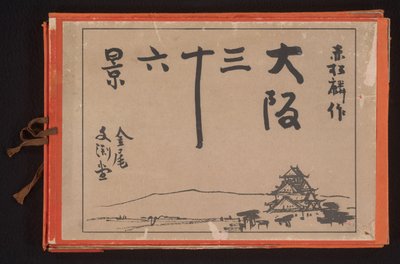 赤松麟作
大阪
三十六景
金尾
文淵堂